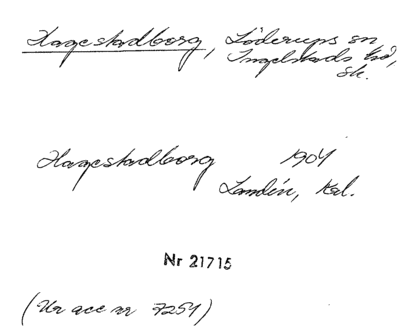 Hagestadborg, Löderups sn
Ingelstads hd,
Sk.
Hagestadborg 1904
Landin, Kal.
Nr 21715
(Ur acc nr 7254)